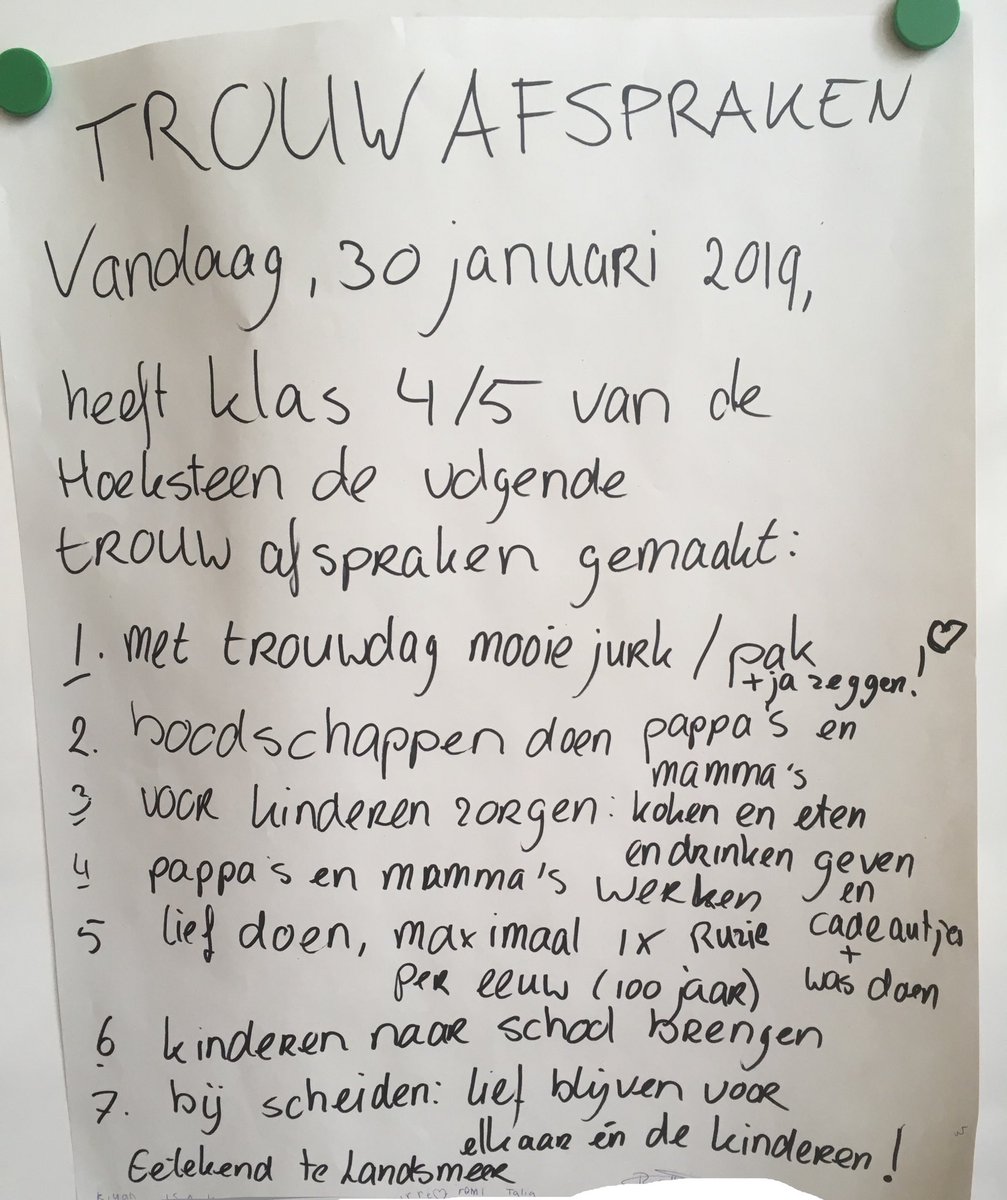 TROUW AFSPRAKEN
Vandaag, 30 januari 2019,
heeft klas 4/5 van de
Hoeksteen de volgende
trouw afspraken gemaakt:
1. met trouwdag mooie jurk / pak
+ ja zeggen! ♡
2. boodschappen doen pappa's en
mamma's
3 voor kinderen zorgen: koken en eten
en drinken geven
4 pappa's en mamma's werken en
5 lief doen, maximaal 1x Ruzie cadeautjes
+
per eeuw (100 jaar) was doen
6 kinderen naar school brengen
7. bij scheiden: lief blijven voor
elkaar én de kinderen!
Getekend te Landsmeer
Talia